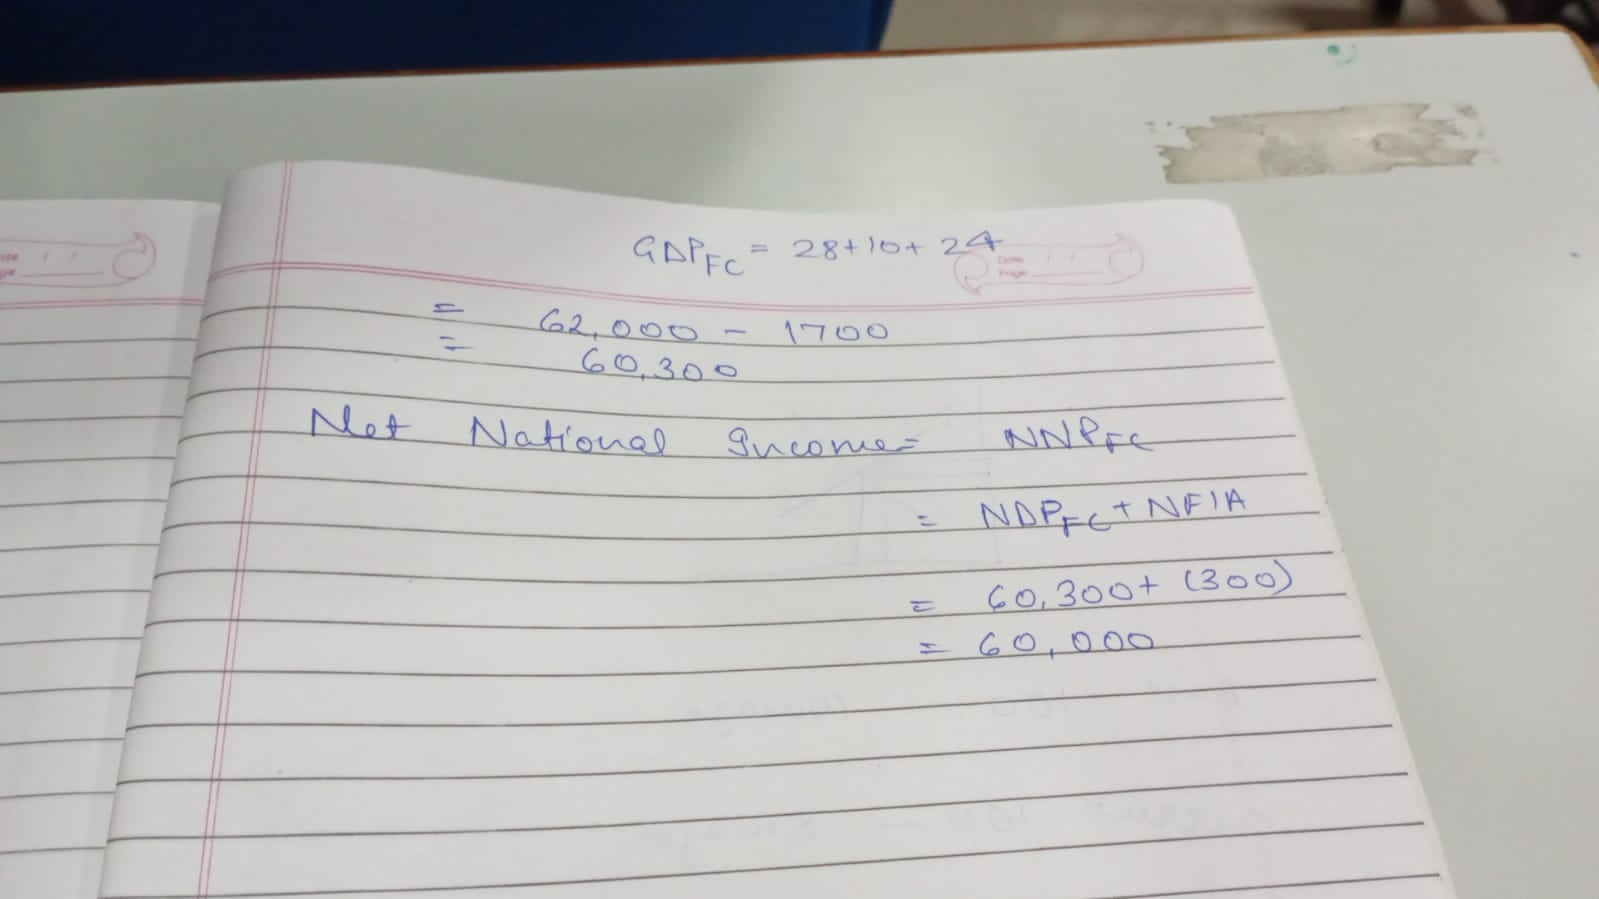 GDPFC = 28+10+ 24
= 62,000 - 1700
= 60,300
Net National Income= NNPFC
= NDPFC + NFIA
= 60,300+ (300)
= 60,000